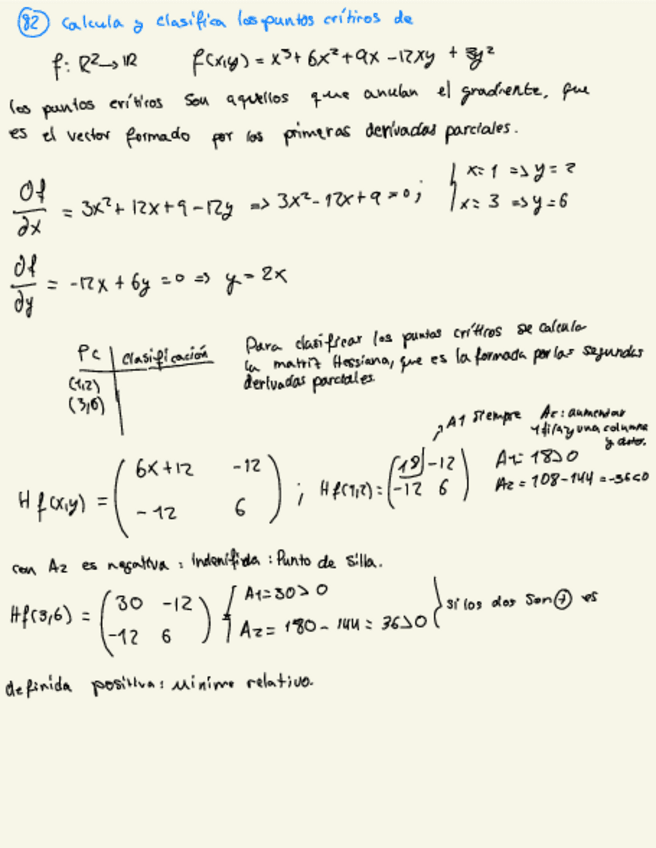 82 Calcula y clasifica los puntos críticos de
f: R²→IR f(x,y) = x³+6x²+9x-12xy + 3y²
los puntos críticos son aquellos que anulan el gradiente, que
es el vector formado por las primeras derivadas parciales.
∂f/∂x = 3x²+12x+9-12y => 3x²-12x+9=0; { x=1 => y=2
x=3 => y=6
∂f/∂y = -12x+6y=0 => y=2x
PC | clasificación
(1,2)
(3,6)
Para clasificar los puntos críticos se calcula
la matriz Hessiana, que es la formada por las segundas
derivadas parciales.
A1 siempre
Ac: aumentar
1 fila y una columna
y deter.
Hf(x,y) = ( 6x+12 -12
-12 6 ) ; Hf(1,2) = ( 18 -12
-12 6 )
A1=18>0
A2=108-144=-36<0
con A2 es negativa: indenifida: Punto de silla.
Hf(3,6) = ( 30 -12
-12 6 ) { A1=30>0
A2=180-144=36>0 } si los dos son ⊕ es
definida positiva: mínimo relativo.